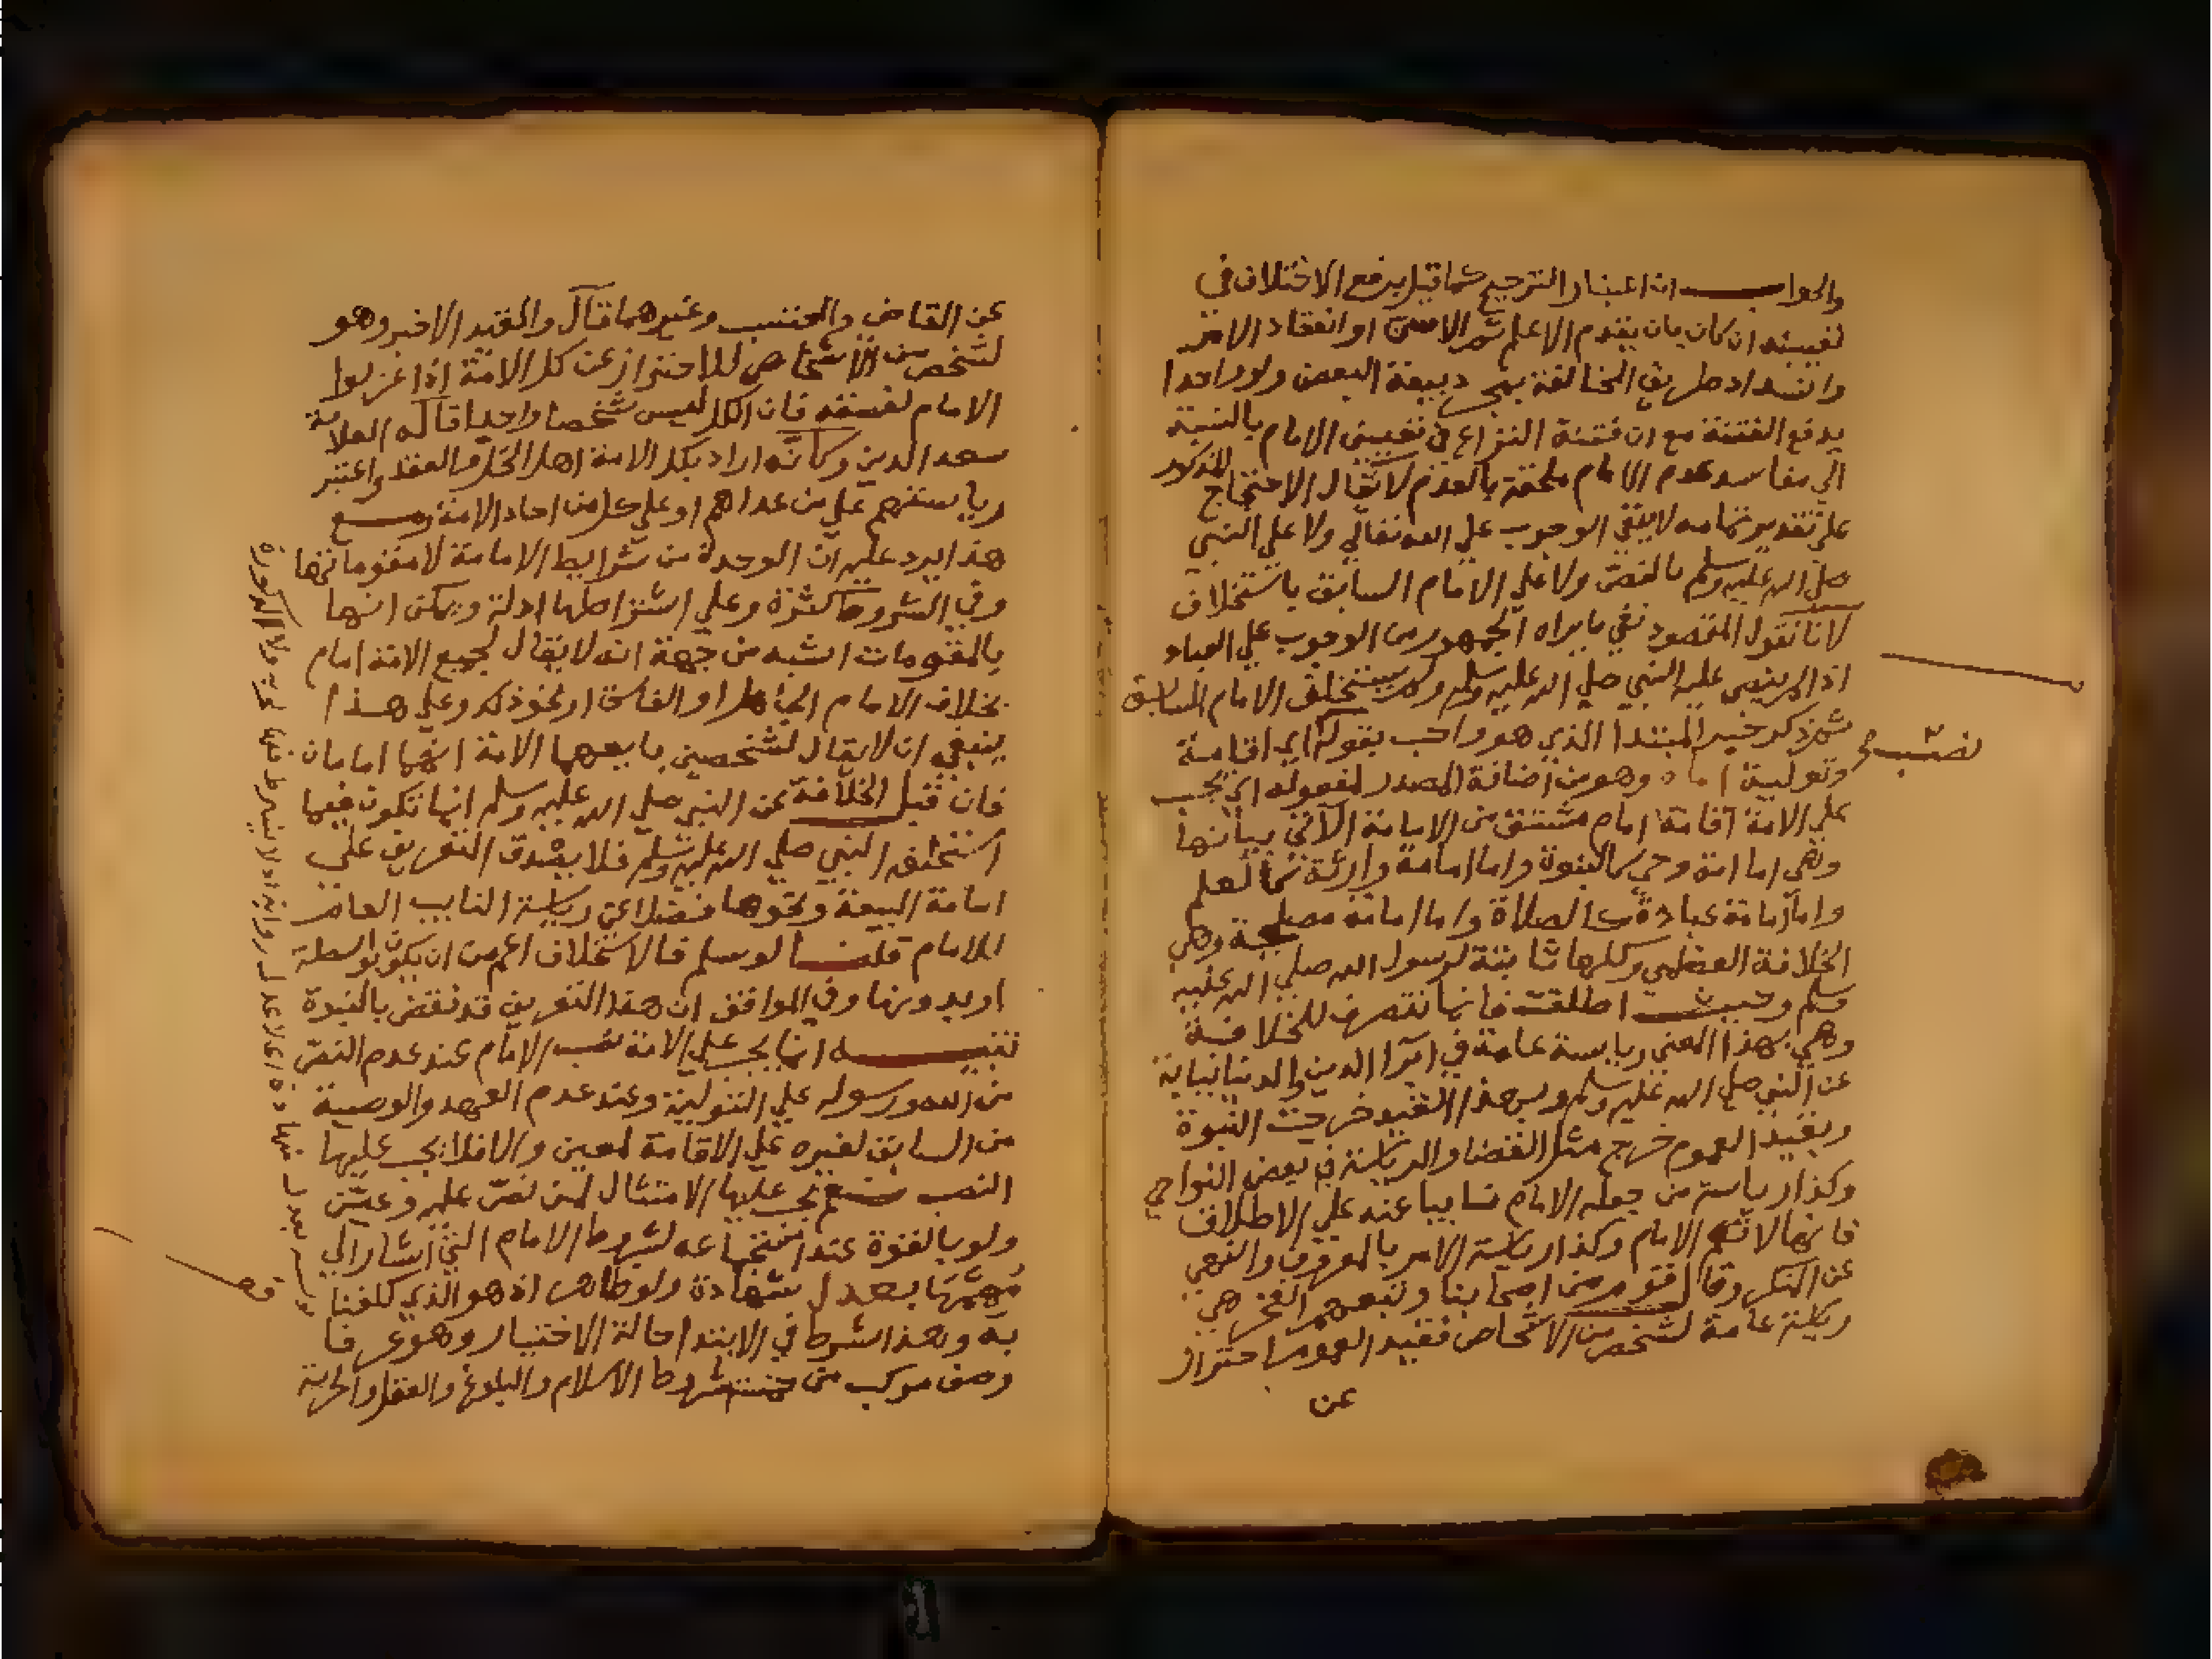 والجواب ان اعتبار الترجيح كما قيل يدفع الاختلاف في
تعيينه ان كان بان يقدم الاعلم ثم الاسن او انعقاد الامر
وانسداد طريق المخالفة بمجرد بيعة البعض ولو واحدا
يدفع الفتنة مع ان فتنة النزاع في تعيين الامام بالنسبة
الي مفاسد عدم الامام ملحقة بالعدم لا يقال الاحتجاج المذكور
علي تقدير تمامه لا ينفي الوجوب علي الله تعالي ولا علي النبي
صلي الله عليه وسلم بالنص ولا علي الامام السابق باستخلاف
لانا نقول المقصود نفي ما يراه الجمهور من الوجوب علي العباد
اذا لم ينص عليه النبي صلي الله عليه وسلم ولم يستخلف الامام السابق
ثم ذكر خبر المبتدا الذي هو واجب بقوله اي اقامة
نصب
وتولية امام وهو من اضافة المصدر لمفعوله اي يجب
علي الامة اقامة امام مشتق من الامامة الآتي بيانها
وهي اما امامة وحي كالنبوة واما امامة وارثة كالعلم
واما امامة عبادة كالصلاة واما امامة مصلحة وهي
الخلافة العظمي وكلها ثابتة لرسول الله صلي الله عليه
وسلم وحيث اطلقت فانها تنصرف للخلافة
وهي بهذا المعني رياسة عامة في امر الدين والدنيا نيابة
عن النبي صلي الله عليه وسلم وبهذا القيد خرجت النبوة
وبقيد العموم خرج مثل القضا والرياسة في بعض النواحي
وكذا رياسة من جعله الامام نايبا عنه علي الاطلاق
فانها لا تعم الامام وكذا رياسة الامر بالمعروف والنهي
عن المنكر وقال قوم من اصحابنا وتبعهم الفخر هي
رياسة عامة لشخص من الاشخاص فقيد العموم احتراز
عن
عن القاضي والمحتسب وغيرهما قال والقيد الاخير وهو
لشخص من الاشخاص للاحتراز عن كل الامة اذا عزلوا
الامام لفسقه فان الكل ليس شخصا واحدا قاله العلامة
سعد الدين وكأنه اراد بكل الامة اهل الحل والعقد واعتبر
رياستهم علي من عداهم او علي كل من احاد الامة ومع
هذا يرد عليه ان الوحدة من شرايط الامامة لا مقوماتها
وفي الشروط كثرة وعلي اشتراطها ادلة ويمكن انها
بالمقومات اشبه من جهة انه لا يقال لجميع الامة امام
بخلاف الامام الجاهل او الفاسق او نحو ذلك وعلي هذا
ينبغي ان لا يقال لشخصين بايعهما الامة انهما امامان
فان قيل الخلافة عن النبي صلي الله عليه وسلم انما تكون فيما
استخلف النبي صلي الله عليه وسلم فلا يصدق التعريف علي
امامة البيعة ونحوها فضلا عن رياسة النايب العام
للامام قلنا لو سلم فالاستخلاف اعم من ان يكون بواسطة
او بدونها وفي المواقف ان هذا التعريف قد نقض بالنبوة
تنبيه انما يجب علي الامة نصب الامام عند عدم النص
من الله ورسوله علي التولية وعند عدم العهد والوصية
من السابق لغيره علي الاقامة لمعين والا فلا يجب عليها
النصب نعم يجب عليها الامتثال لمن نص عليه وعين
ولو بالقوة عند استجماعه لشروط الامام التي اشار الي
بعضها بعدل شهادة ولو ظاهرا اذ هو الذي كلفنا
به وهذا شرط في الابتدا حالة الاختيار وهو عرفا
وصف مركب من خمسة شروط الاسلام والبلوغ والعقل والحرية